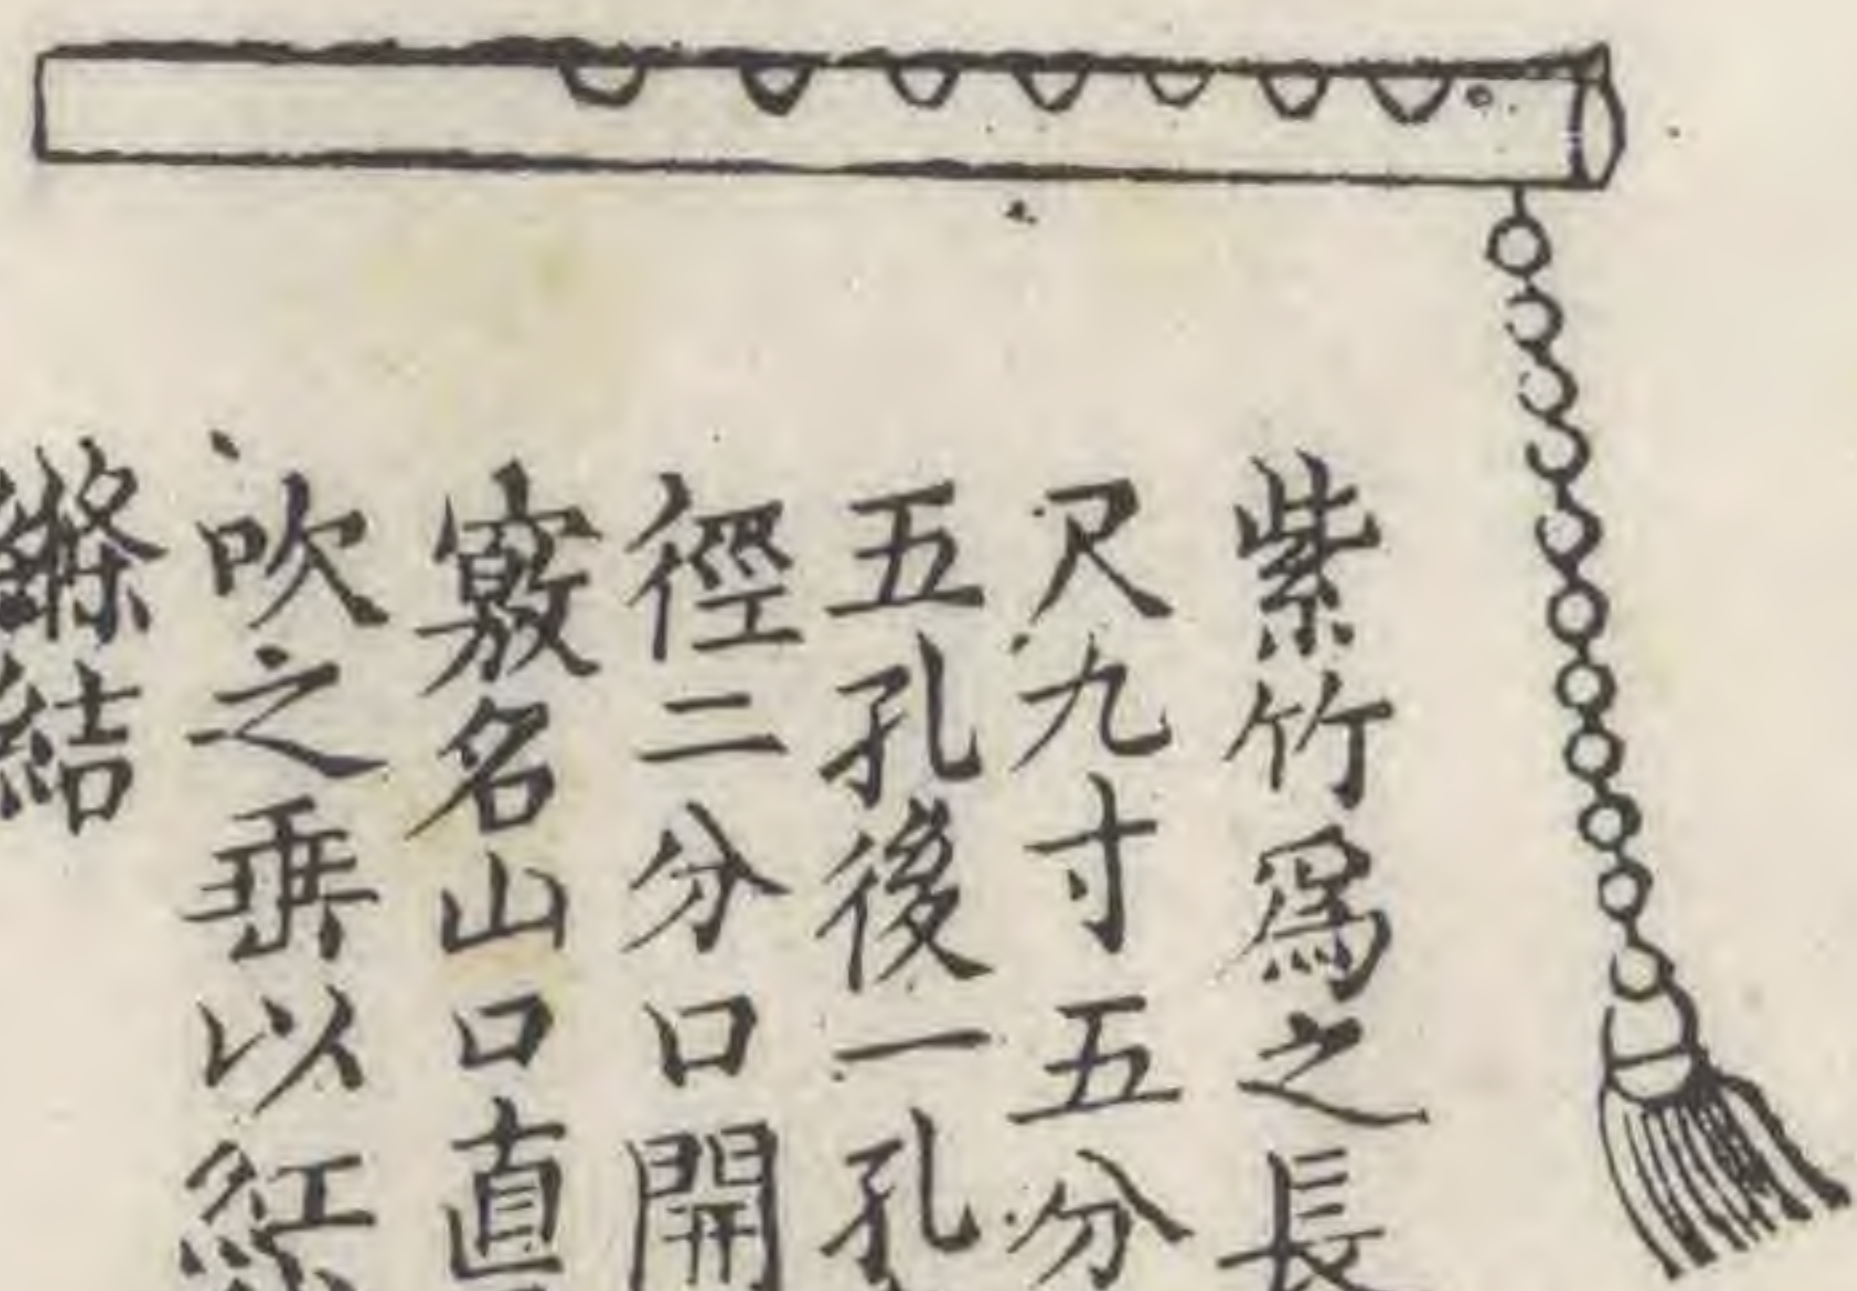 紫竹爲之長
尺九寸五分
五孔後一孔
徑二分口開
竅名山口直
吹之垂以紅
絛結